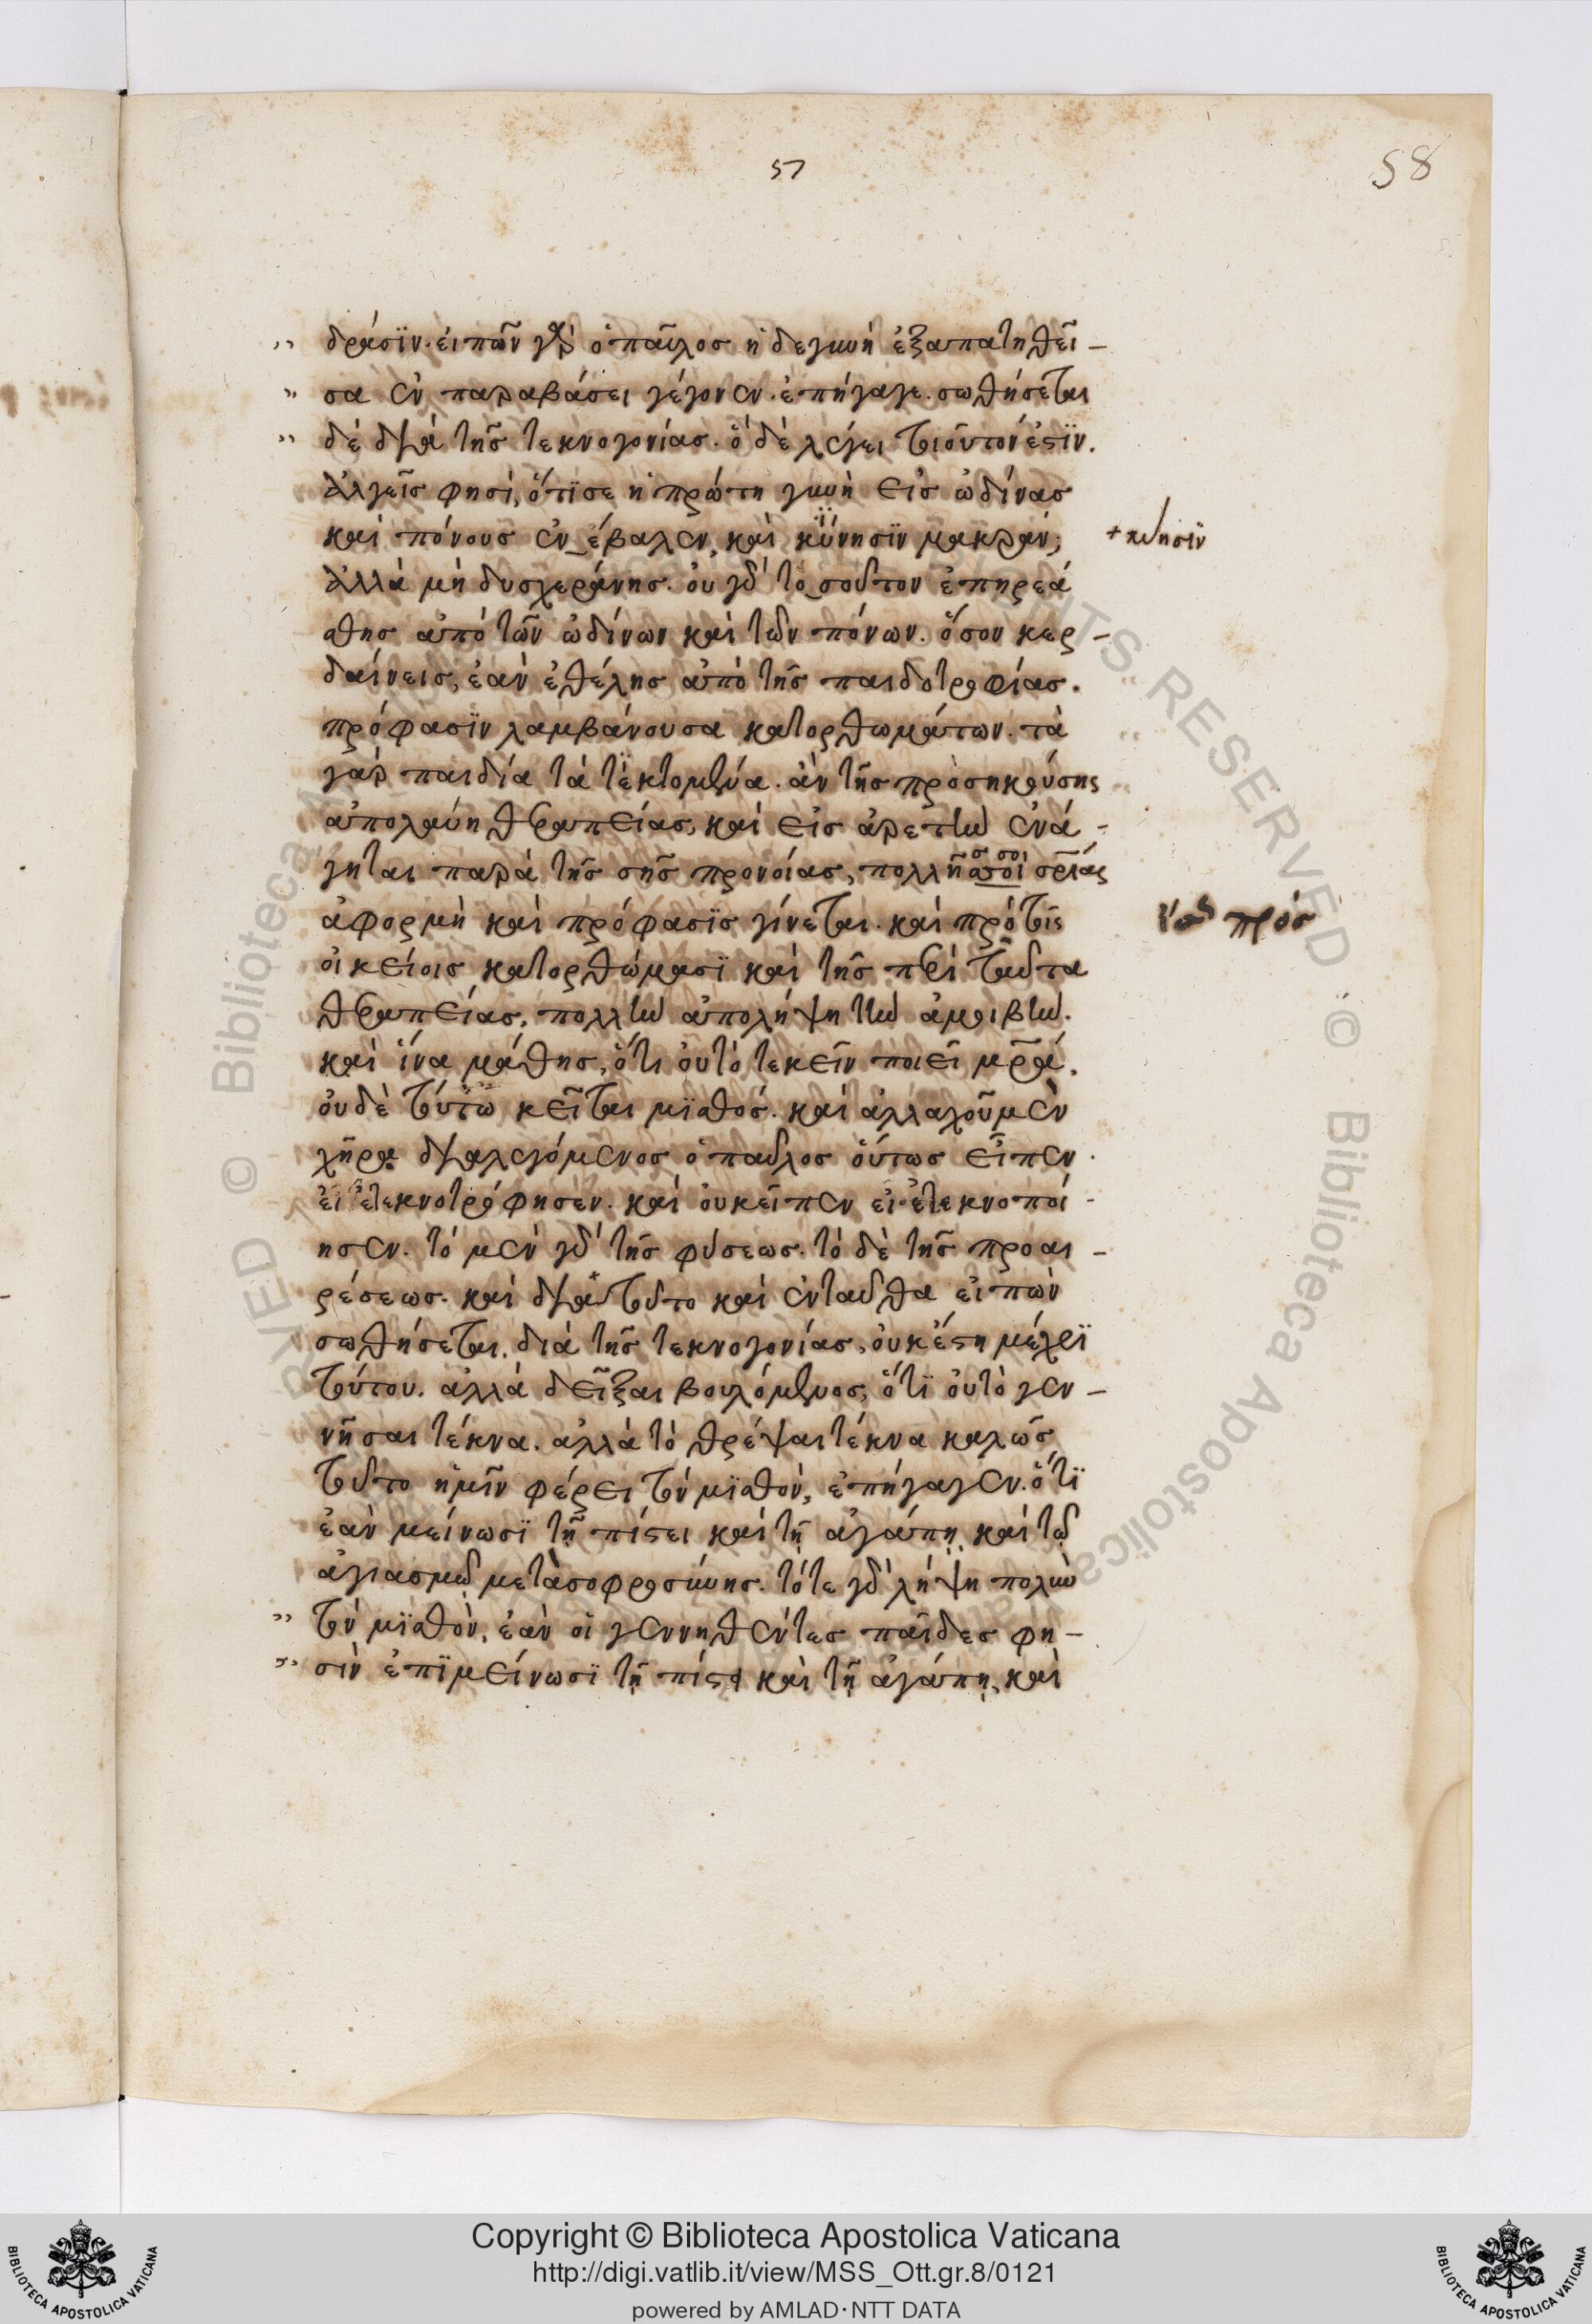 57
58
δράσϊν. εἰπῶν γὰρ ὁ παῦλος ἡ δὲ γυνὴ ἐξαπατηθεῖ –
σα ἐν παραβάσει γέγονεν. ἐπήγαγε. σωθήσεται
δὲ διὰ τῆς τεκνογονίας. ὃ δὲ λέγει τοιοῦτον ἐστϊν.
Ἀλγεῖς φησί, ὅτϊ σε ἡ πρώτη γυνὴ εἰς ὠδίνας
καὶ πόνους ἐν έβαλεν, καὶ κϋνησϊν μακράν;
+ κύησϊν
Ἀλλὰ μὴ δυσχεράνης. οὐ γὰρ το σοῦτον ἐπηρεά
σθης ἀπὸ τῶν ὠδίνων καὶ τῶν πόνων. ὅσον κερ –
δαίνεις, ἐὰν ἐθέλης ἀπὸ τῆς παιδοτροφίας.
πρόφασϊν λαμβάνουσα κατορθωμάτων. τὰ
γὰρ παιδία τὰ τϊκτομενα. ἀν τῆς προσηκούσης
ἀπολαύη θεραπείας, καὶ εἰς ἀρετὴν ἐνά –
γηται παρὰ τῆς σῆς προνοίας, πολλῆς σοι σωτηρίας
ἀφορμὴ καὶ πρόφασϊς γίνεται. καὶ πρὸ τοῖς
ἴσως πρός
οἰκείοις κατορθώμασϊ καὶ τῆς περὶ ταῦτα
θεραπείας, πολλὴν ἀπολήψη τὴν ἀμοιβὴν.
καὶ ἵνα μάθης, ὅτι οὐ τὸ τεκεῖν ποιεῖ μητέρα.
οὐδὲ τούτω κεῖται μϊσθός. καὶ ἀλλαχοῦ μὲν
χῆρα διαλεγόμενος ὁ παῦλος οὕτως εἶπεν.
εἰ ἐτεκνοτρόφησεν. καὶ οὐκ εἶπεν εἰ ἐτεκνοποί –
ησεν. τὸ μὲν γὰρ τῆς φύσεως. τὸ δὲ τῆς προαι –
ρέσεως. καὶ διὰ τοῦτο καὶ ἐνταῦθα εἰπὼν
σωθήσεται. διὰ τῆς τεκνογονίας, οὐκ ἔστη μέχρϊ
τούτου. ἀλλὰ δεῖξαι βουλόμενος, ὅτϊ οὐ τὸ γεν –
νῆσαι τέκνα. ἀλλὰ τὸ θρέψαι τέκνα καλῶς
τοῦτο ἡμῖν φέρει τὸν μϊσθὸν, ἐπήγαγεν. ὅτϊ
ἐὰν μείνωσϊ τῇ πίστει καὶ τῇ ἀγάπῃ καὶ τῷ
ἁγιασμῷ μετὰ σοφροσύνης. τότε γὰρ λήψη πολὺν
τὸν μϊσθὸν, ἐὰν οἱ γεννηθέντες παῖδες φη –
σὶν ἐπϊμείνωσϊ τῇ πίστει καὶ τῇ ἀγάπῃ, καὶ
Copyright © Biblioteca Apostolica Vaticana
http://digi.vatlib.it/view/MSS_Ott.gr.8/0121
powered by AMLAD·NTT DATA
BIBLIOTECA APOSTOLICA VATICANA
BIBLIOTECA APOSTOLICA VATICANA